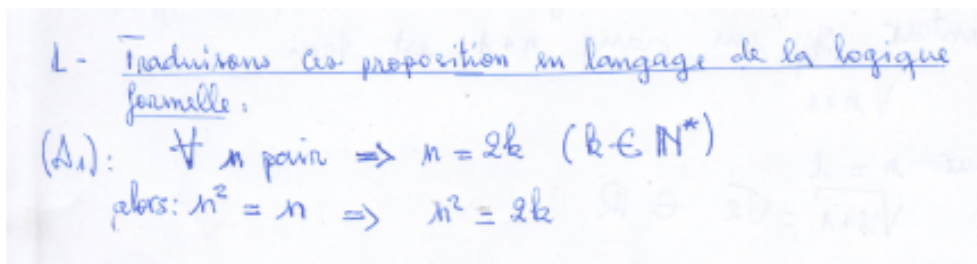 1 - Traduisons ces proposition en langage de la logique
formelle.
(A₁): ∀ n pair => n = 2k (k ∈ ℕ*)
alors: n² = n => n² = 2k